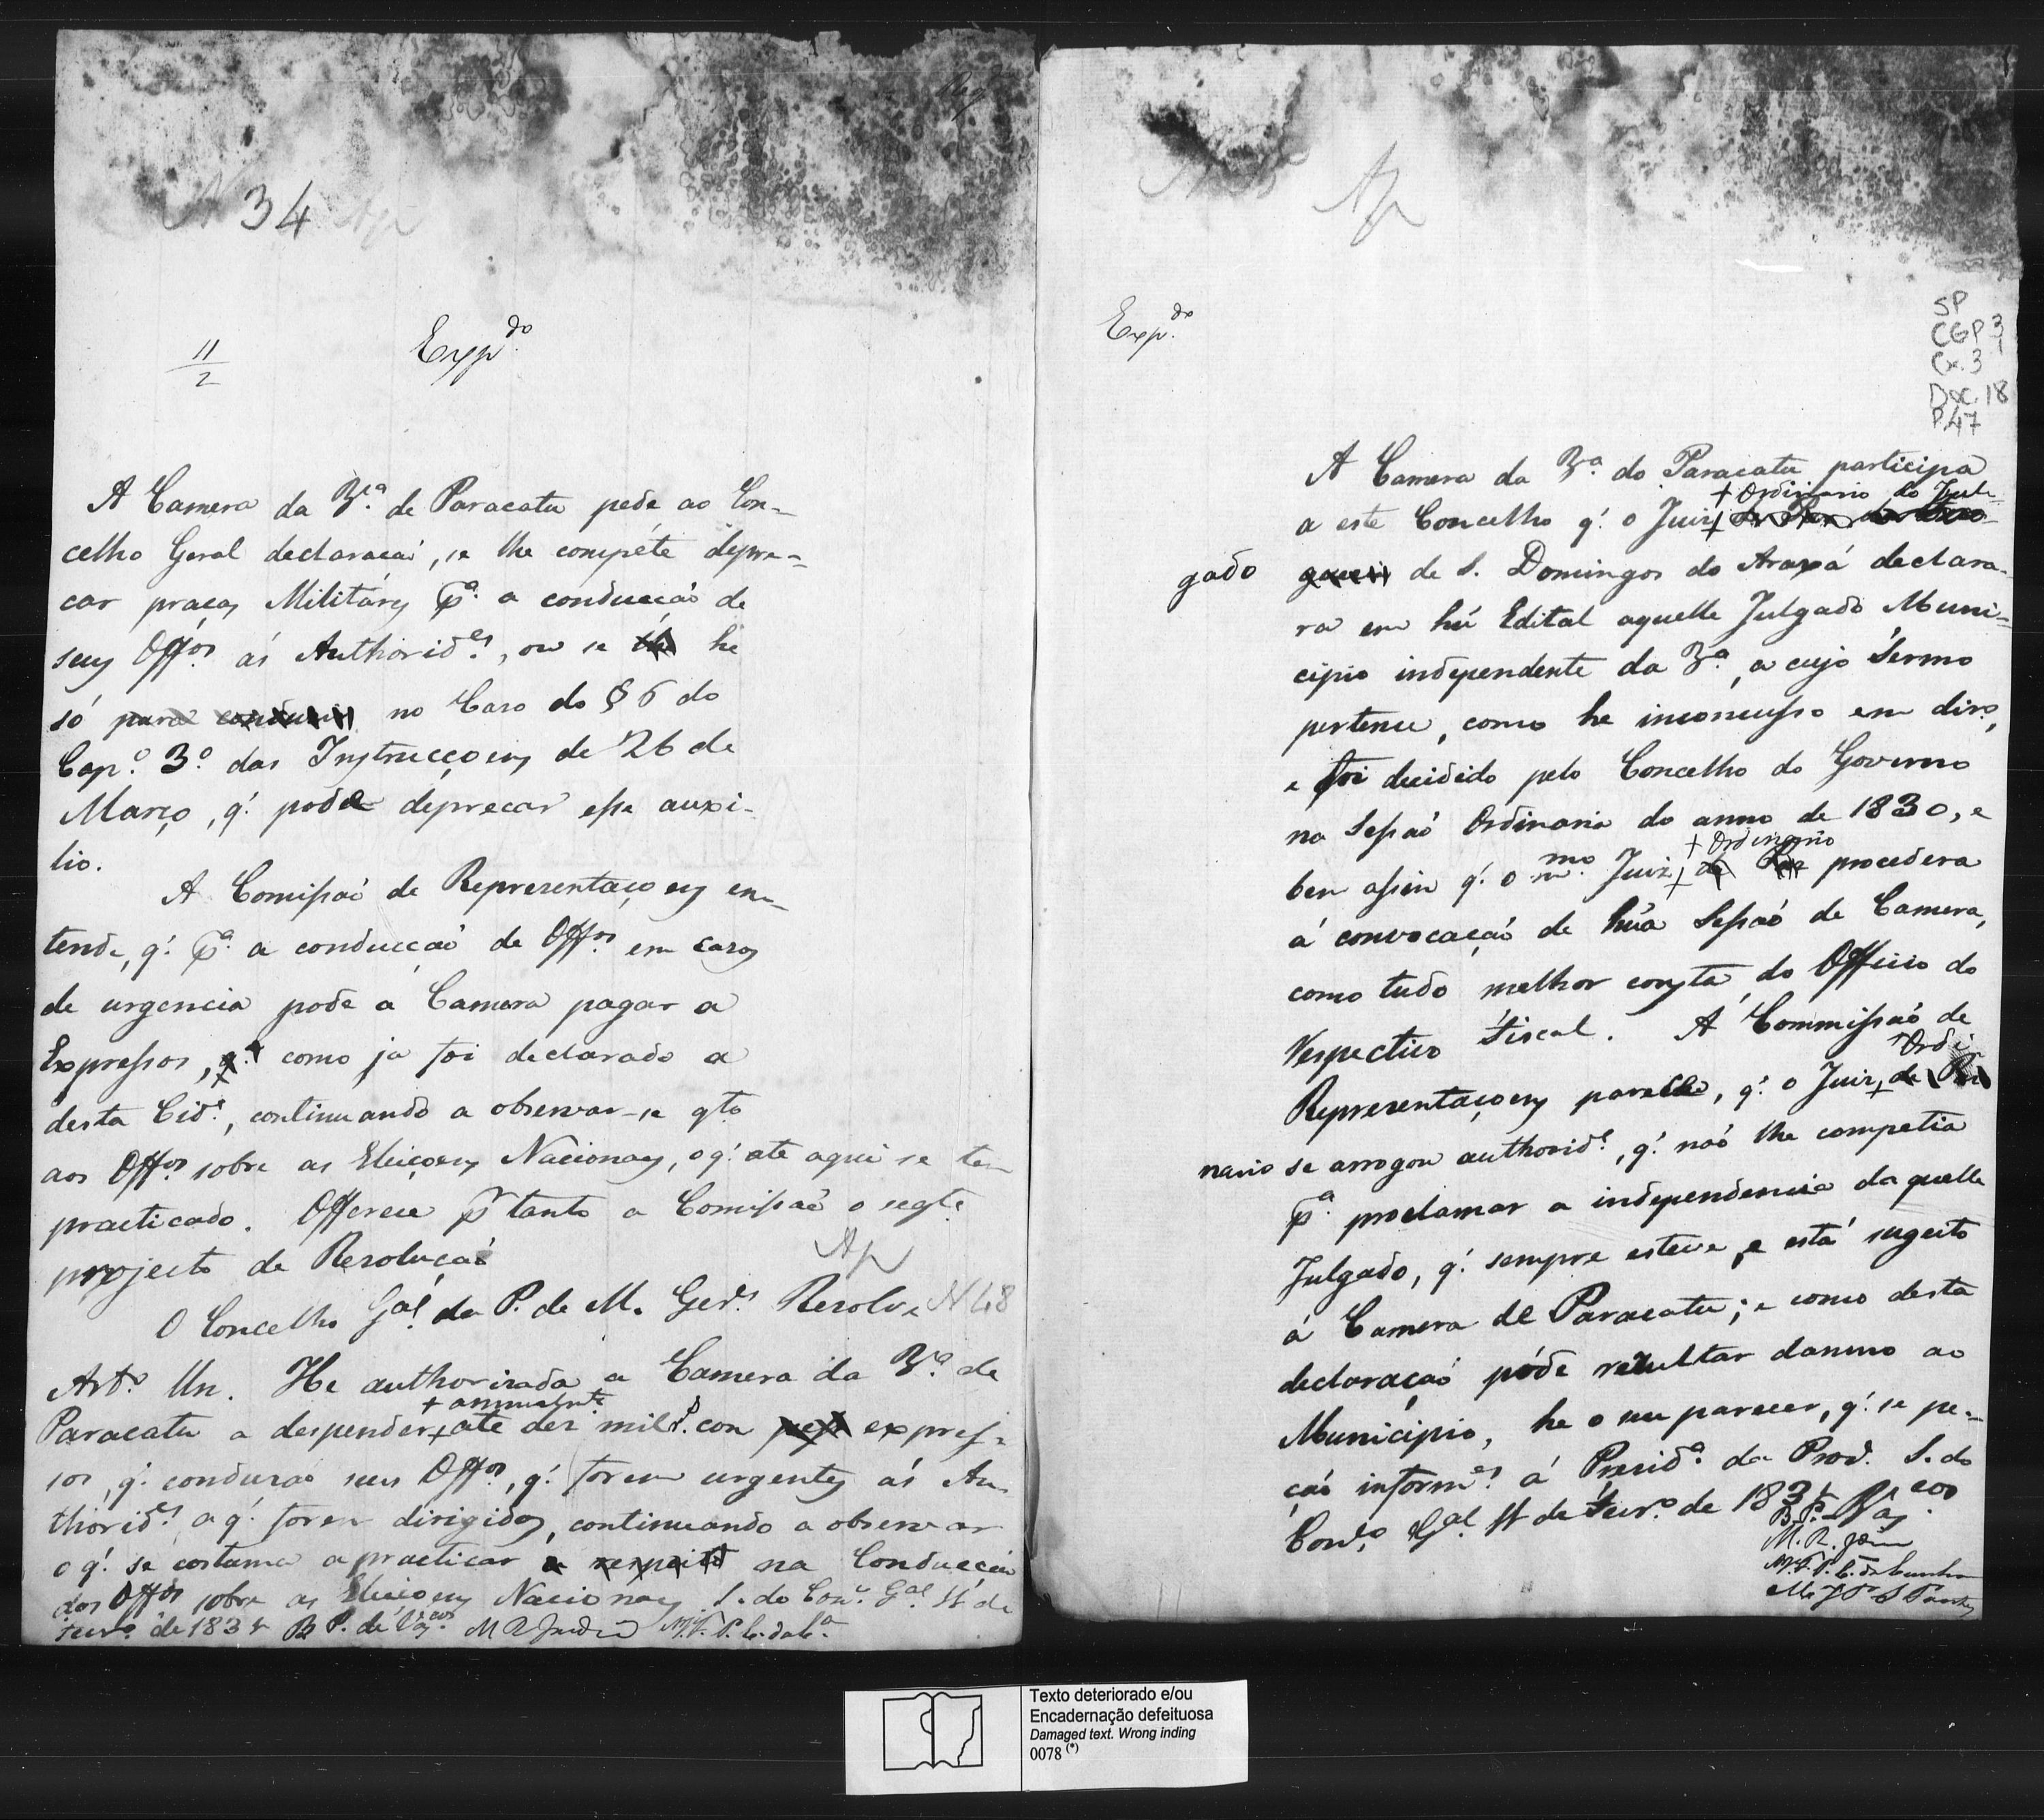 N 34 Ap
11/2
Expdo.
A Camera da Va. de Paracatu pede ao Con-
celho Geral declaraçaõ, se lhe compéte depre-
car praças Militáres pa. a conducçaõ de
seus Offos. ás Authorides., ou se he
só para conduzir no Caso do § 6 do
Capo. 3o. das Instrucçoens de 26 de
Março, q̃. póde deprecar esse auxi-
lio.
A Comissaõ de Representaçoens en-
tende, q̃. pa. a conducçaõ de Offos. em casos
de urgencia pode a Camara pagar a
Expressos, como ja foi declarado a
desta Cide., continuando a observar-se qto.
aos Offos. sobre as Eleiçoens Nacionaes, o q̃. ate aqui se tem
practicado. Offerece pr. tanto a Comissaõ o segte.
projecto de Resoluçaõ
Ap
O Concelho Gal. da P. de M. Geres. Resolve N 48
Arto. Un. He authorizada a Camera da Va. de
+ annualmte.
Paracatu a despender + ate dez mil r. con expres-
sos, q̃. conduzaõ seus Offos., q̃. forem urgentes ás Au-
thorides. a q̃. forem dirigidos, continuando a observar
o q̃. se costuma a practicar a respeito na Conducçaõ
dos Offos. sobre as Eleiçoens Nacionaes. S. do Cono. Gal. 11 de
Fevro. de 1831 B P. de Vascos. M R Jardim M. F. P. C. da Ca.
Ap
Expdo.
SP
CGP 3
1
Cx. 3
Doc. 18
P.47
A Camera da Va. do Paracatu participa
+ Ordinario do Jul-
a este Concelho q̃. o Juiz +
gado de S. Domingos do Araxá declara-
ra em hũ Edital aquelle Julgado Muni-
cipio independente da Va., a cujo Termo
pertence, como he inconcusso em diro.,
e foi decidido pelo Concelho do Governo
na Sessaõ Ordinaria do anno de 1830, e
+ Ordinario
bem assim q̃. o mmo. Juiz + de Paz procedera
á convocaçaõ de hũa Sessaõ de Camera,
como tudo melhor consta do Officio do
respectivo Fiscal. A Commissaõ de
+ Ordi-
Representaçoens parece, q̃. o Juiz + de Paz
nario se arrogou authoride., q̃. naõ lhe competia
pa. proclamar a independencia daquelle
Julgado, q̃. sempre esteve, e está sugeito
á Camera de Paracatu; e como desta
declaraçaõ póde rezultar damno ao
Municipio, he o seu parecer, q̃. se pe-
çaõ informes. á Presida. da Prov. S. do
Cono. Gal. 11 de Fevro. de 1831 B. P. Vascos
M. R. Jdim
M. F. P. C. da Cunha
Texto deteriorado e/ou
Encadernação defeituosa
Damaged text. Wrong inding
0078 (*)